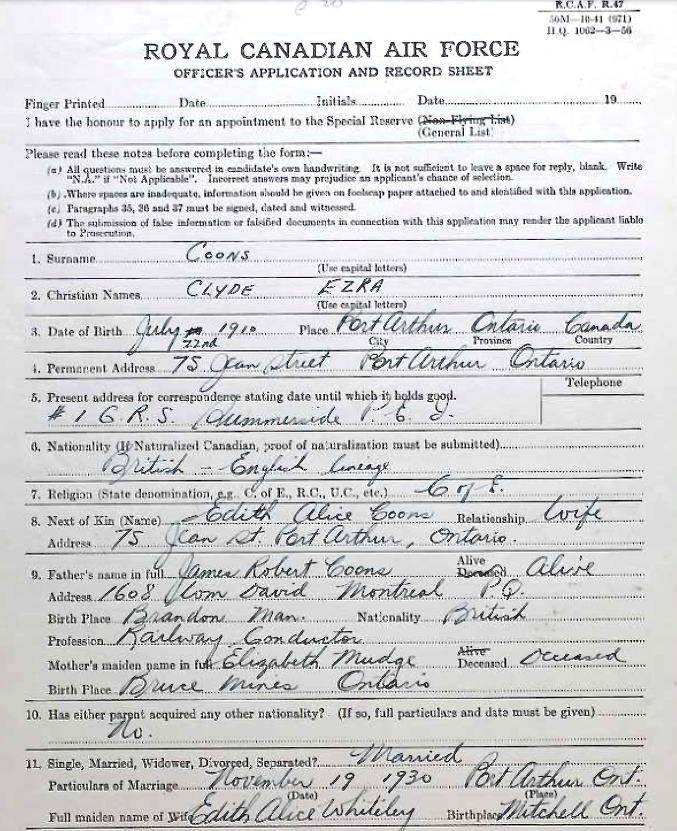 R.C.A.F. R.47
50M—10-41 (971)
H.Q. 1062—3—56
ROYAL CANADIAN AIR FORCE
OFFICER'S APPLICATION AND RECORD SHEET
Finger Printed Date Initials Date 19
I have the honour to apply for an appointment to the Special Reserve (Non-Flying List)
(General List)
Please read these notes before completing the form:—
(a) All questions must be answered in candidate's own handwriting. It is not sufficient to leave a space for reply, blank. Write
"N.A." if "Not Applicable". Incorrect answers may prejudice an applicant's chance of selection.
(b) Where spaces are inadequate, information should be given on foolscap paper attached to and identified with this application.
(c) Paragraphs 35, 36 and 37 must be signed, dated and witnessed.
(d) The submission of false information or falsified documents in connection with this application may render the applicant liable
to Prosecution.
1. Surname COONS
(Use capital letters)
2. Christian Names CLYDE EZRA
(Use capital letters)
3. Date of Birth July 22nd 1910 Place Port Arthur Ontario Canada
City Province Country
4. Permanent Address 75 Jean Street Port Arthur Ontario
5. Present address for correspondence stating date until which it holds good. Telephone
#1 G.R.S. Summerside P.E.I.
6. Nationality (If Naturalized Canadian, proof of naturalization must be submitted)
British - English lineage
7. Religion (State denomination, e.g., C. of E., R.C., U.C., etc.) C of E.
8. Next of Kin (Name) Edith Alice Coons Relationship Wife
Address 75 Jean St. Port Arthur, Ontario.
9. Father's name in full James Robert Coons Alive Deceased Alive
Address 1608 David Montreal P.Q.
Birth Place Brandon Man. Nationality British
Profession Railway Conductor
Mother's maiden name in full Elizabeth Mudge Alive Deceased Deceased
Birth Place Bruce Mines Ontario
10. Has either parent acquired any other nationality? (If so, full particulars and date must be given)
No.
11. Single, Married, Widower, Divorced, Separated? Married
Particulars of Marriage November 19 1930 Port Arthur Ont.
(Date) (Place)
Full maiden name of Wife Edith Alice Whiteley Birthplace Mitchell Ont.